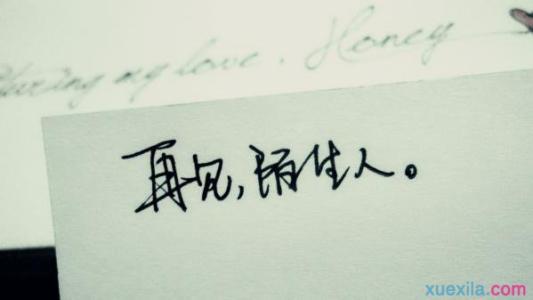 my love. Honey
再见,陌生人。
xuexila.com